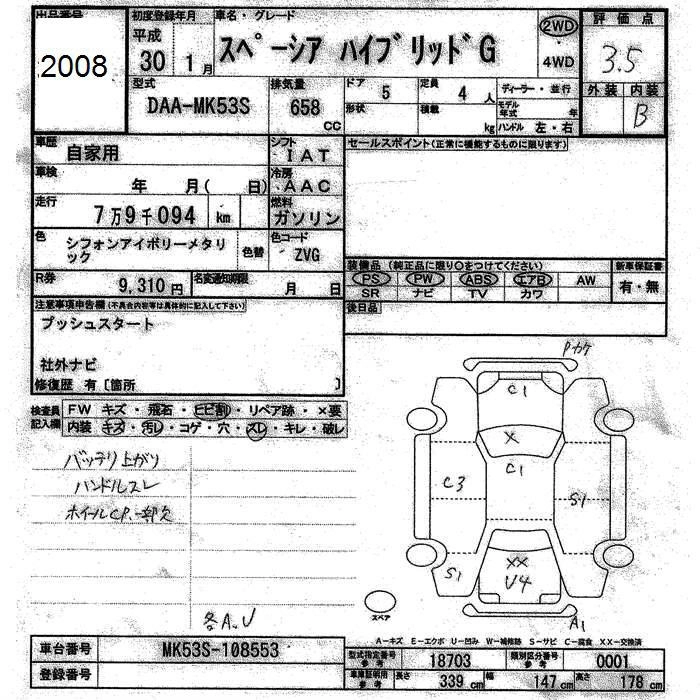 出品番号 2008
初度登録年月 平成 30 1月
車名・グレード スペーシア ハイブリッドG
2WD
4WD
評価点 3.5
外装 内装 B
型式 DAA-MK53S
排気量 658 cc
ドア 5
定員 4 人
形状
積載 kg
ディーラー・並行
モデル年式 年
ハンドル 左・右
車歴 自家用
シフト IAT
セールスポイント(正常に機能するものに限ります)
車検 年 月( 日)
冷房 AAC
走行 7万9千094 km
燃料 ガソリン
色 シフォンアイボリーメタリック
色替
色コード ZVG
装備品 (純正品に限り○をつけてください)
新車保証書
PS PW ABS エアB AW
有・無
SR ナビ TV カワ
R券 9,310円
名変通知期限 月 日
後日品
注意事項申告欄(不具合内容等は具体的に記入して下さい)
プッシュスタート
社外ナビ
修復歴 有〔箇所 〕
検査員記入欄
FW キズ・飛石・ヒビ割・リペア跡・×要
内装 キズ・汚レ・コゲ・穴・スレ・キレ・破レ
バッテリ上がり
ハンドルスレ
ホイールCP、一部欠
各A.U
Pカケ
C1
X
C1
C3
S1
S1
XX
U4
A1
スペア
A-キズ E-エクボ U-凹み W-補修跡 S-サビ C-腐食 XX-交換済
車台番号 MK53S-108553
登録番号
型式指定番号 参考 18703
類別区分番号 参考 0001
車庫証明用 参考 長さ 339cm 幅 147cm 高さ 178cm